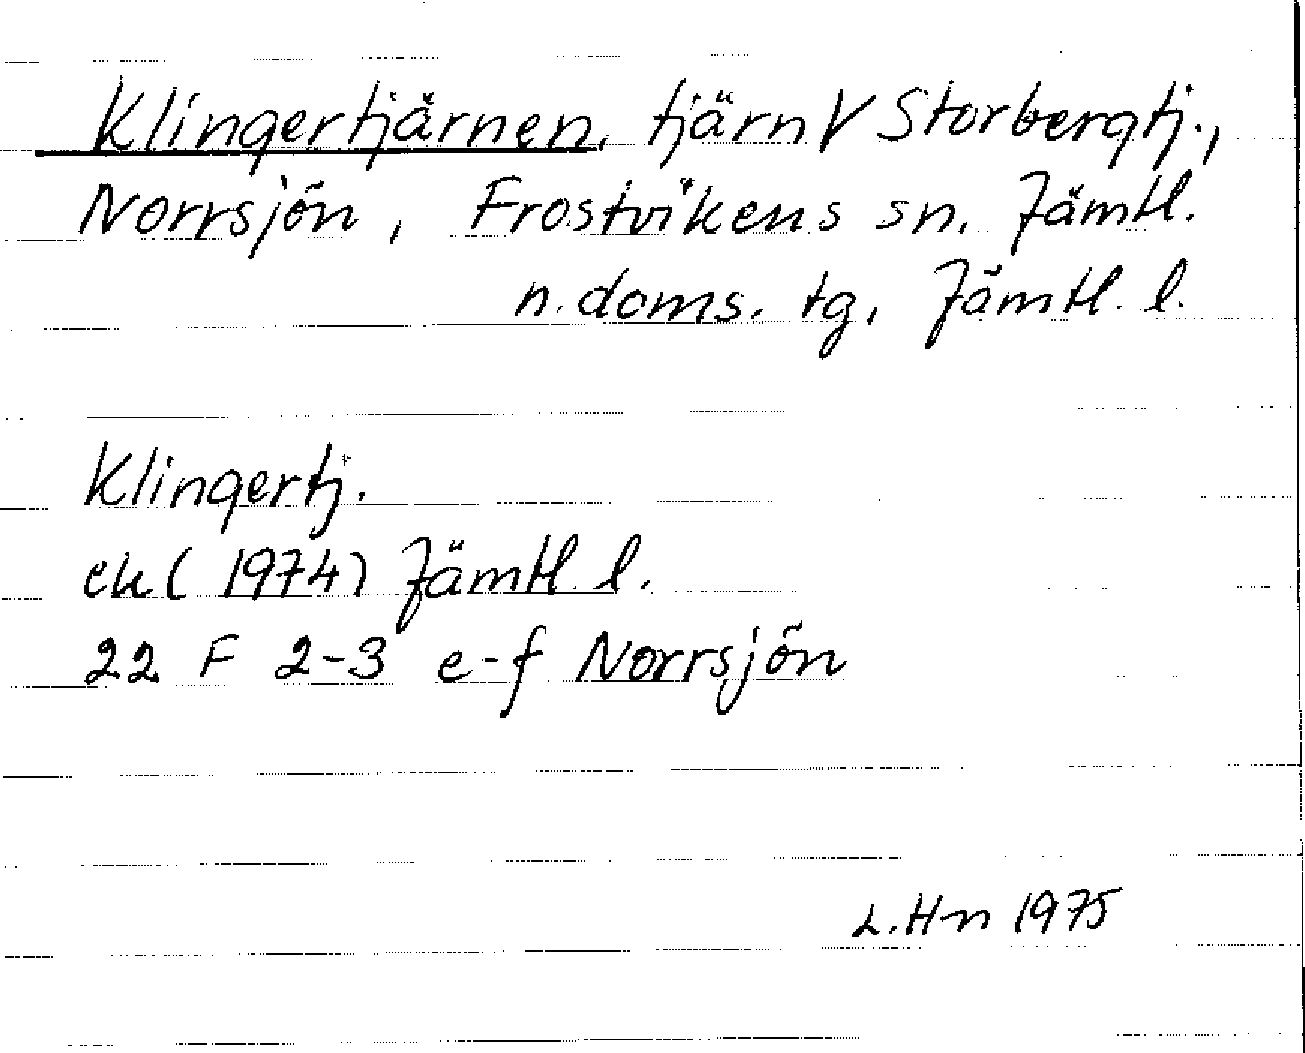 Klingertjärnen, tjärn V Storbergtj.,
Norrsjön, Frostvikens sn. Jämtl.
n. doms. tg, Jämtl. l.
Klingertj.
ek (1974) Jämtl l.
22 F 2-3 e-f Norrsjön
L.Hn 1975